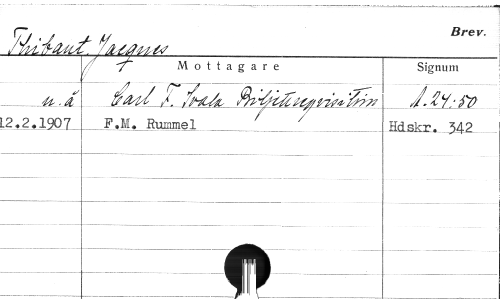 Brev.
Thibaut, Jacques
Mottagare Signum
u.å Carl F. Svala Biljettrequisition A.24:50
12.2.1907 F.M. Rummel Hdskr. 342